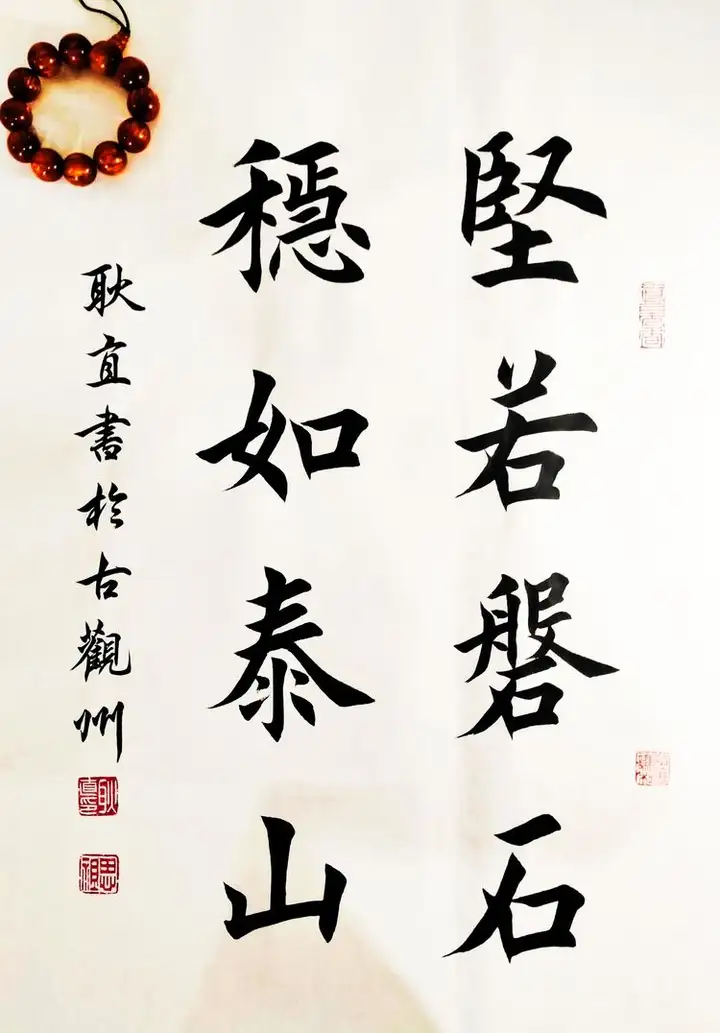 堅若磐石
穩如泰山
耿直書於古觀州
耿直印